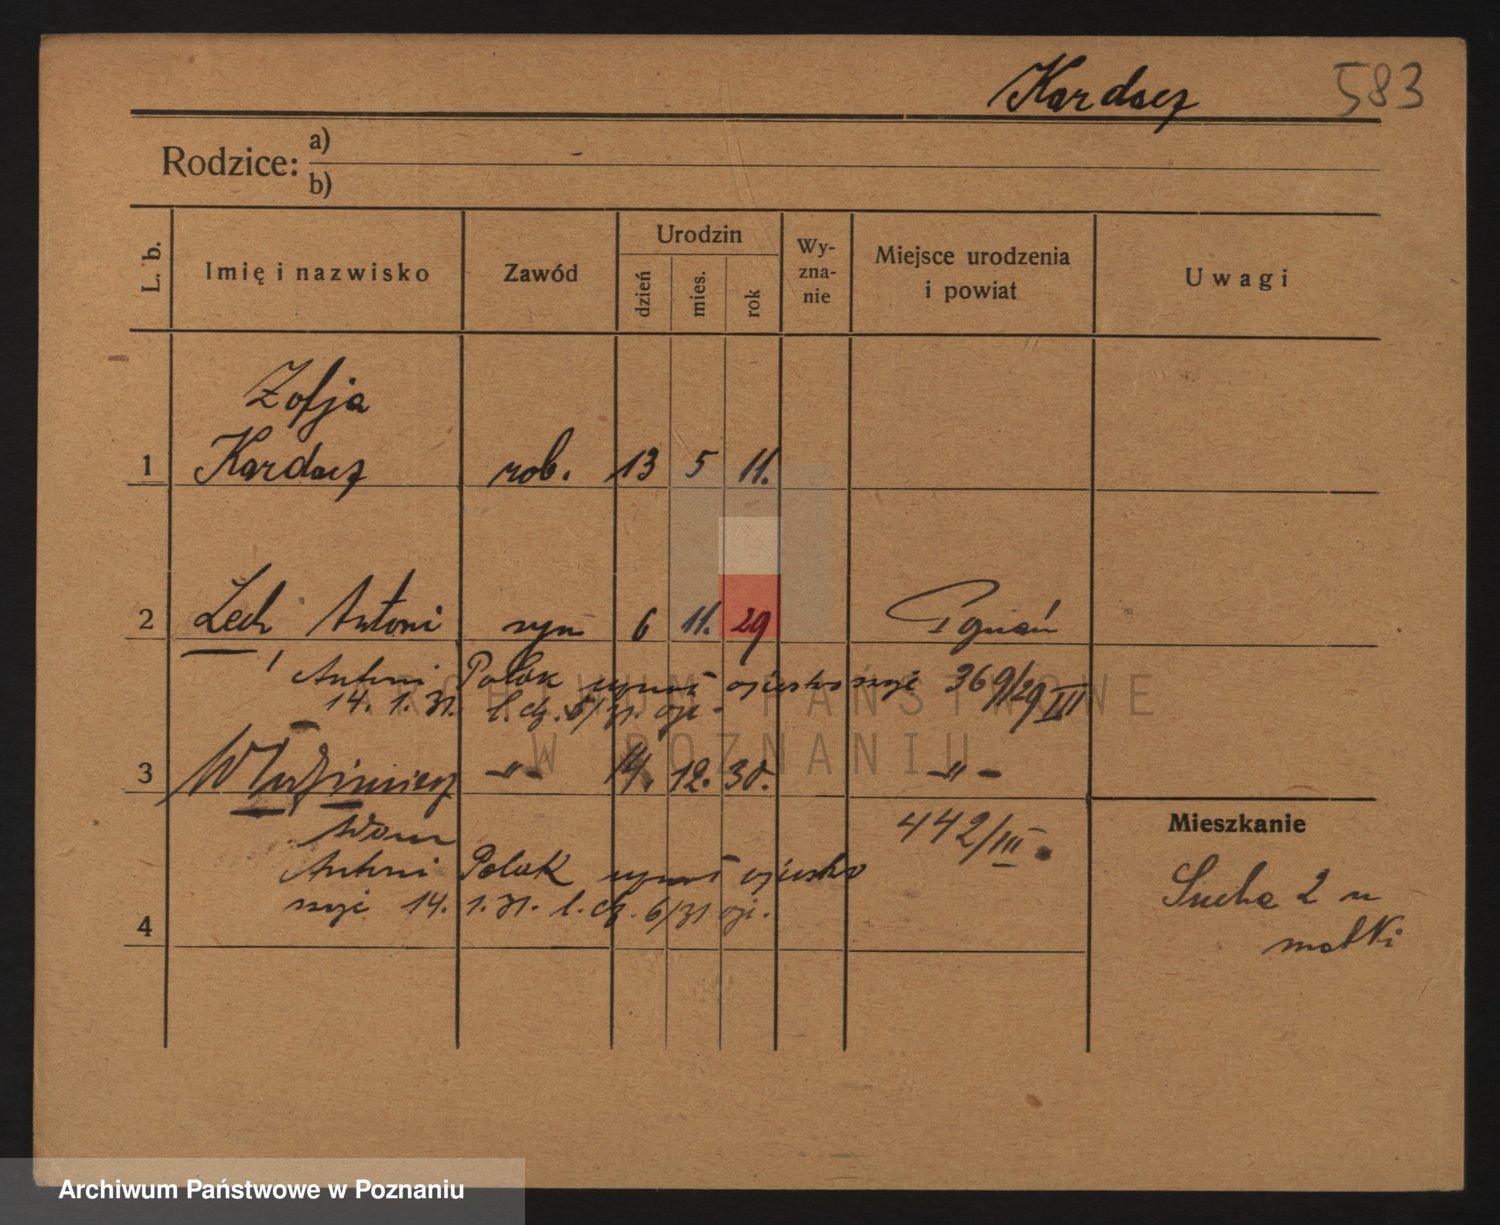 Kardacz 583
Rodzice: a)
b)
L. b. Imię i nazwisko Zawód Urodzin dzień mies. rok Wy-zna-nie Miejsce urodzenia i powiat Uwagi
Zofja
1 Kardacz rob. 13 5 11.
2 Lech Antoni syn 6 11. 29 Poznań
Antoni Polak uznał ojcostwo 369/29 III
14. 1. 31. l. dz. 5/31.
3 Włodzimierz -"- 14. 12. 30. -"-
Adam 442/III
Antoni Polak uznał ojcostwo
14. 1. 31. l. dz. 6/31
4
Mieszkanie
Sucha 2 u
matki
ARCHIWUM PAŃSTWOWE
W POZNANIU
Archiwum Państwowe w Poznaniu